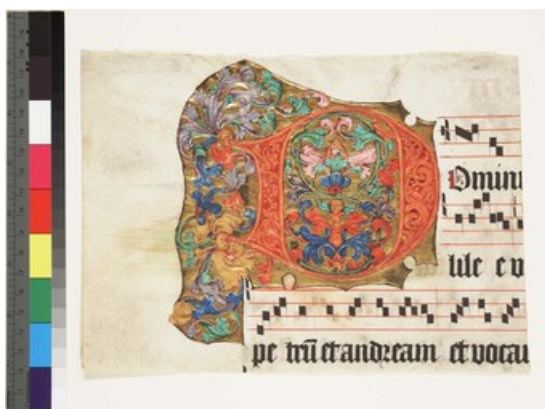 DOminu
lile e v
pe trũ et andream et vocaui